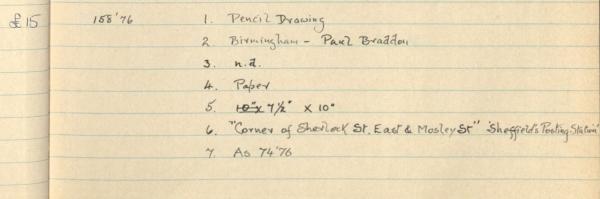 £15 158'76 1. Pencil Drawing
2 Birmingham - Paul Braddon
3. n.d.
4. Paper
5. 10" x 7½" x 10"
6. "Corner of Sherlock St. East & Mosley St" 'Sheffield's Posting-Station'
7. As 74'76